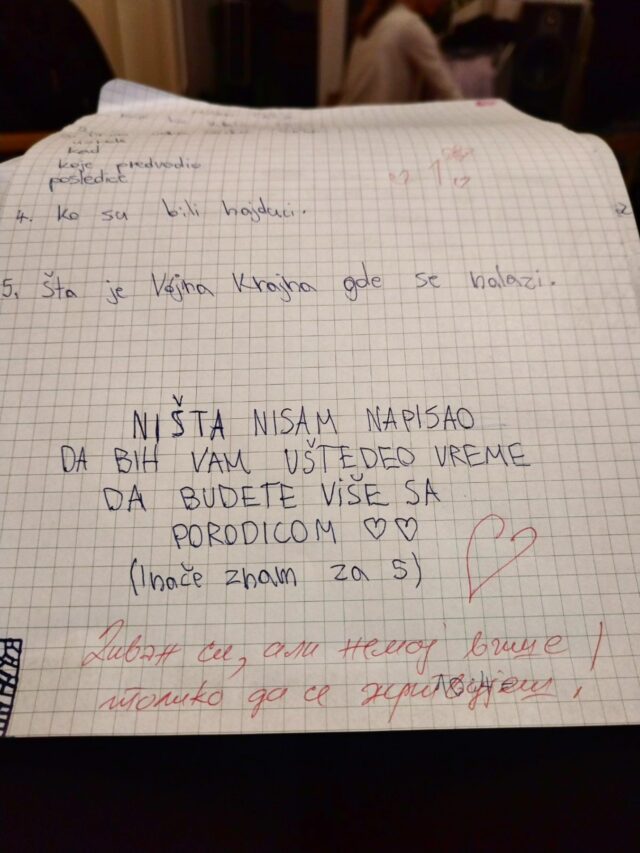 kad
koje predvodio
posledice
1
4. ko su bili hajduci.
5. Šta je Vojna Krajna gde se nalazi.
NIŠTA NISAM NAPISAO
DA BIH VAM UŠTEDEO VREME
DA BUDETE VIŠE SA
PORODICOM ♡♡
(Inače znam za 5)
Диван си, али немој више
толико да се жртвујеш!